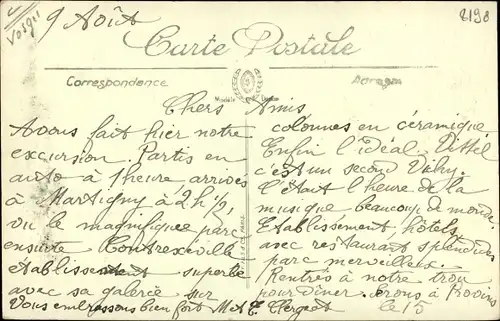 Vosges
9 Août
8198
Carte Postale
Correspondance
Adresse
Chers Amis
Avons fait hier notre
excursion. Partis en
auto à 1 heure arrivés
à Martigny à 2h½,
vu le magnifique parc
ensuite Contrexeville
établissement superbe
avec sa galerie sur
Vous embrassons bien fort M et E. Clergeot
colonnes en céramique
Enfin l'ideal. Vittel
c'est un second Vichy.
C'était l'heure de la
musique beaucoup de monde.
Etablissement, hôtels
avec restaurant splendides
parc merveilleux.
Rentrés à notre trou
pour diner. Serons à Provins
le 15